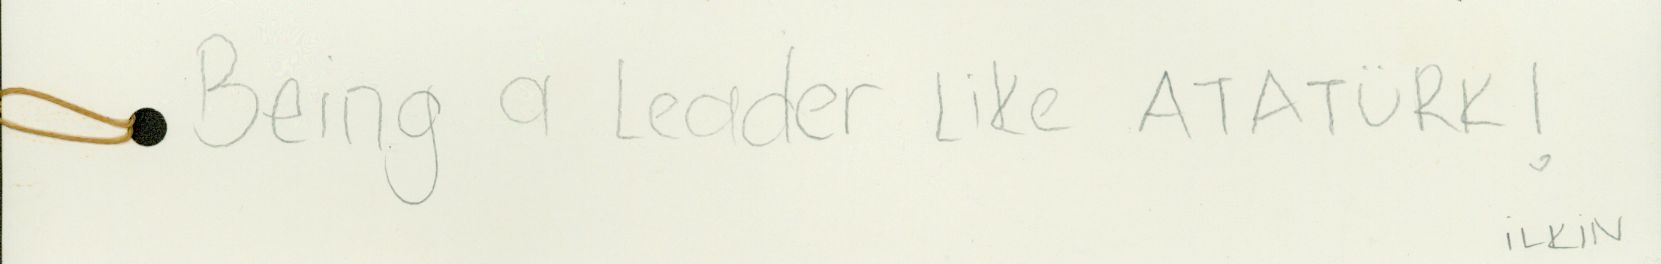 Being a Leader Like ATATÜRK!
iLKiN